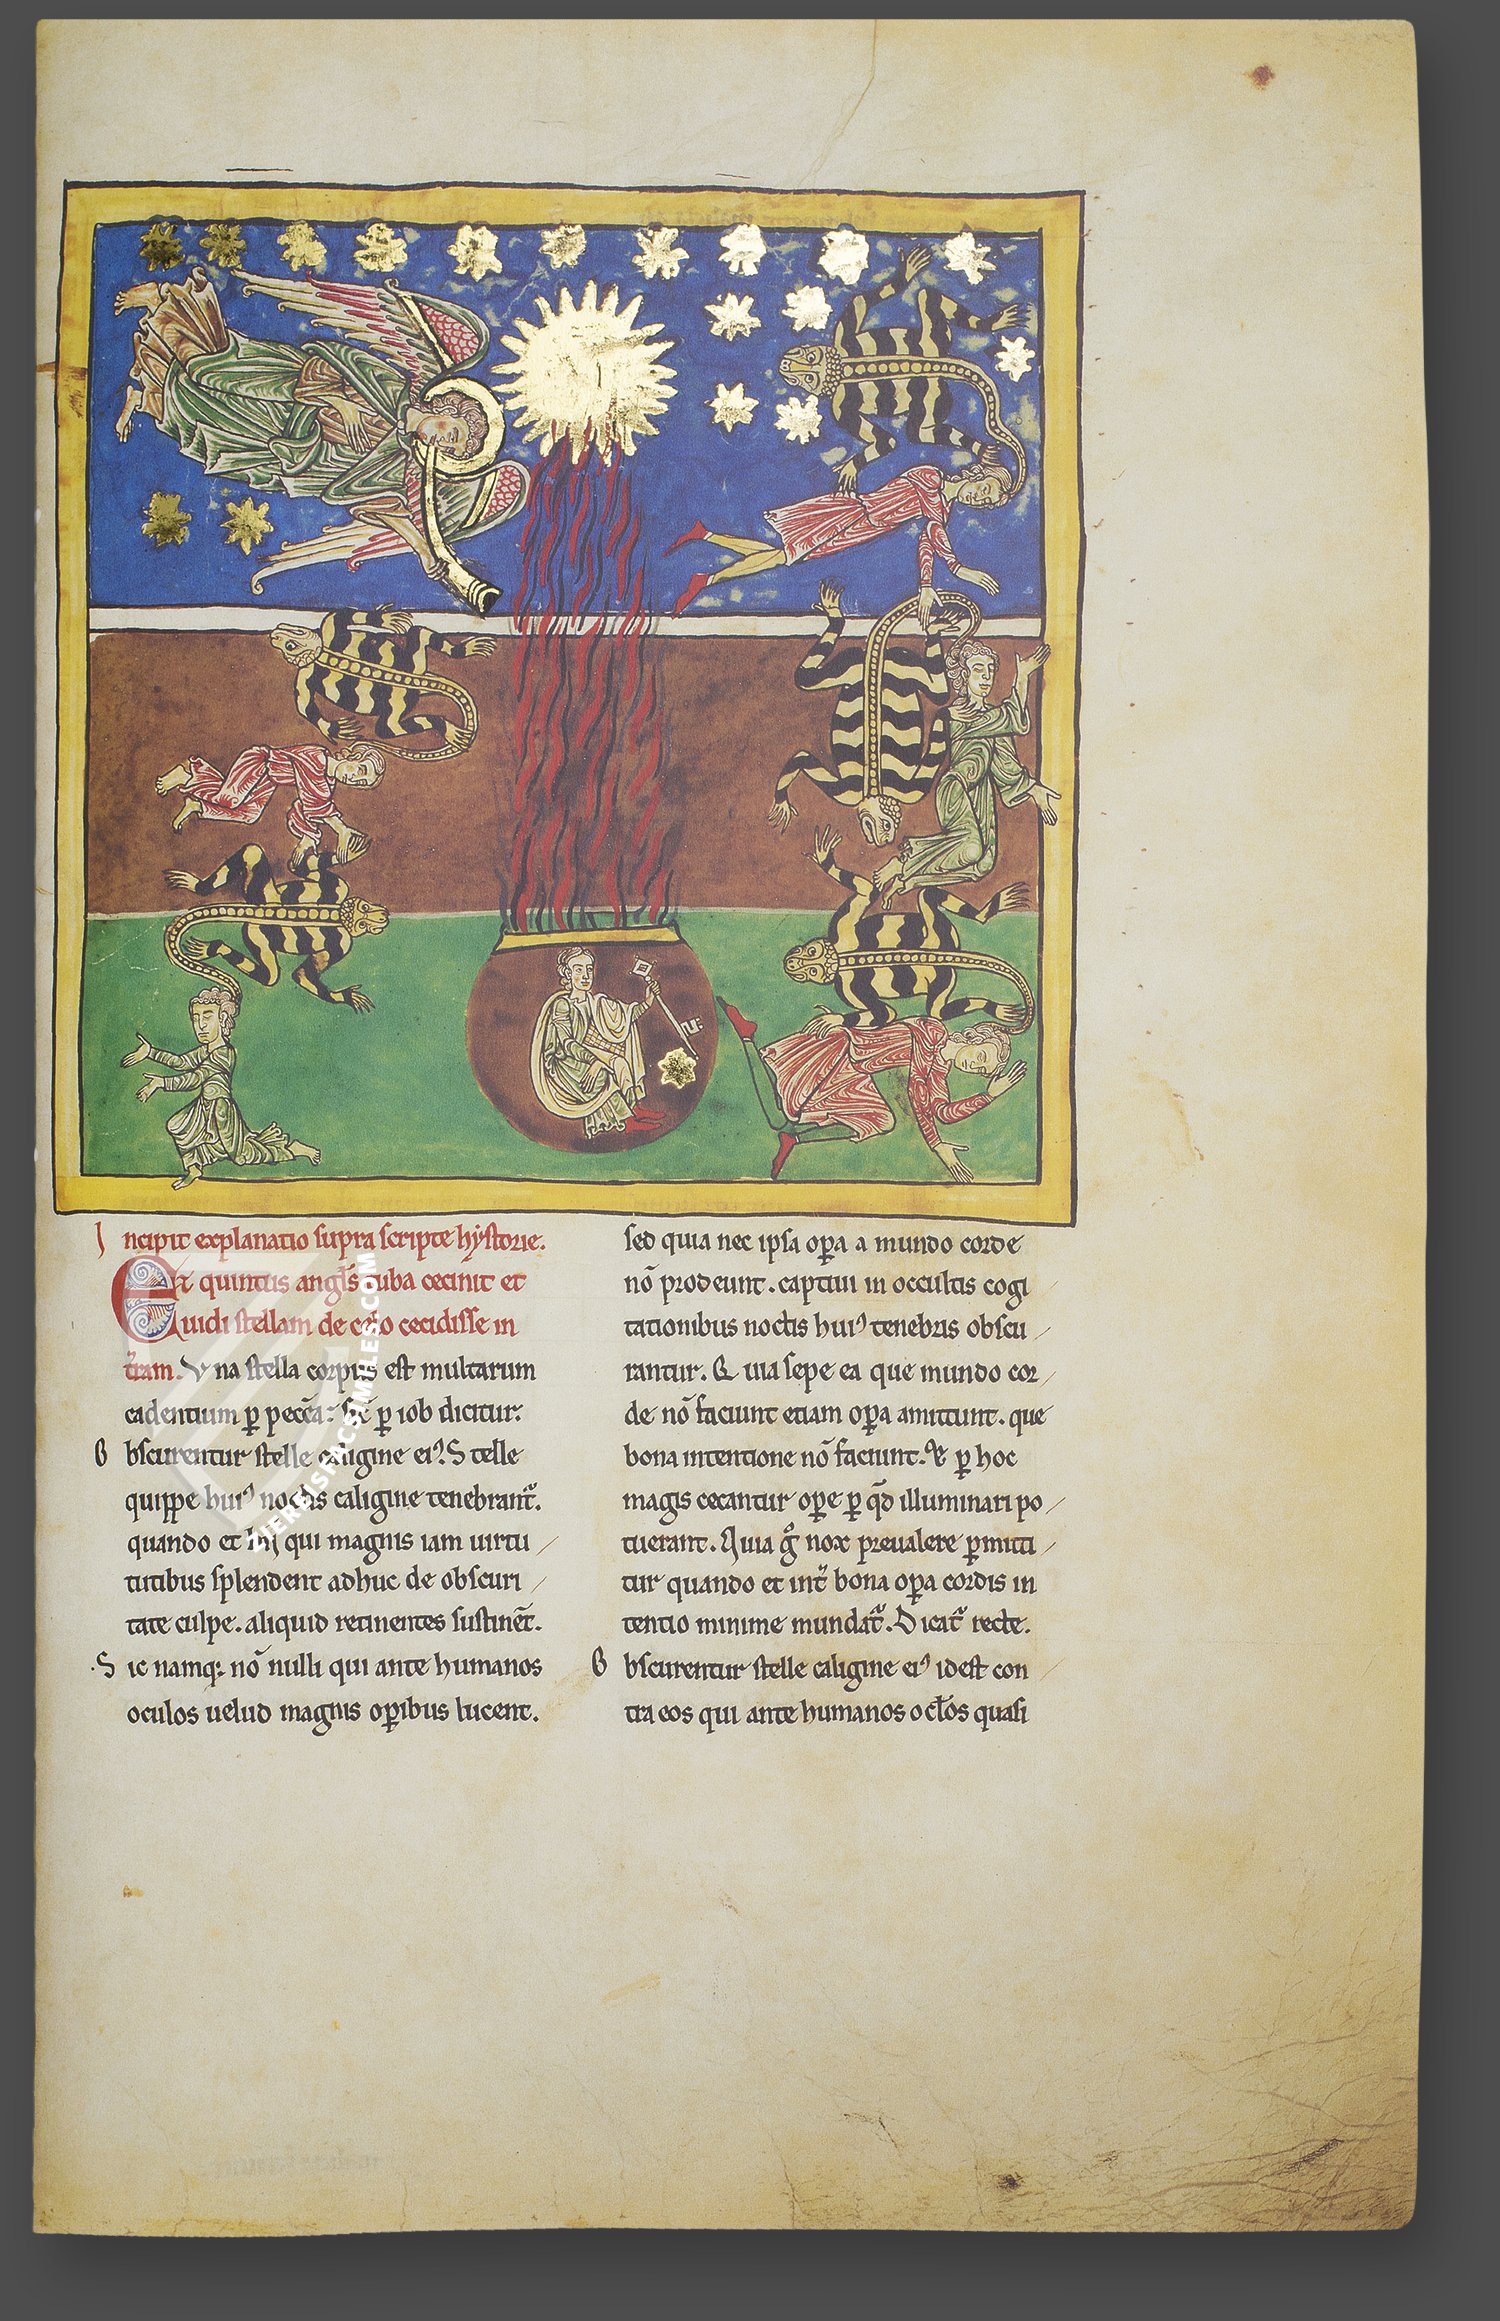 Incipit explanatio supra scripte hystorie.
Et quintus angl̄s tuba cecinit et
uidi stellam de cęlo cecidisse in
t̄ram. Una stella corpus est multarum
cadentium ꝑ peccā: sic̄ ꝑ iob dicitur.
Obscurentur stelle caligine eiꝰ. Stelle
quippe huiꝰ noctis caligine tenebrant᷑.
quando et hij qui magnis iam uirtu
tutibus splendent adhuc de obscuri
tate culpe. aliquid retinentes sustinēt.
Sic namq; nō nulli qui ante humanos
oculos uelud magnis oꝑibus lucent.
sed quia nec ipsa oꝑa a mundo corde
nō prodeunt. captiui in occultis cogi
tationibus noctis huiꝰ tenebris obscu
rantur. Et uia sepe ea que mundo cor
de nō faciunt etiam oꝑa amittunt. que
bona intentione nō faciunt. Et ꝑ hoc
magis cecantur oꝑe ꝑ qđ illuminari po
tuerant. Quia gͦ nox preualere ꝑmitti
tur quando et int̄ bona oꝑa cordis in
tentio minime mundat᷑. Dicat᷑ recte.
Obscurentur stelle caligine eiꝰ idest con
tra eos qui ante humanos oclōs quasi
ZIEREISFACSIMILES.COM